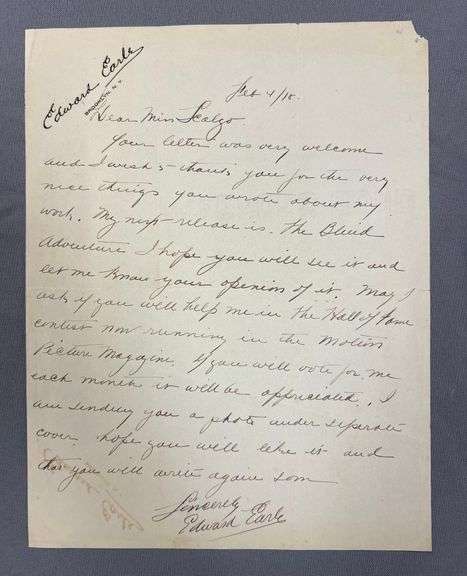 Edward Earle
BROOKLYN, N.Y.
Feb 4/18.
Dear Miss Scalzo.
Your letter was very welcome
and I wish to thank you for the very
nice things you wrote about my
work. My next release is. The Blind
Adventure I hope you will see it and
let me know your openion of it. May I
ask if you will help me in the Hall of Fame
contest now running in the Motion
Picture Magazine. If you will vote for me
each month it will be appreciated. I
am sending you a photo under seperate
cover. hope you will like it and
that you will write again soon
Sincerely
Edward Earle